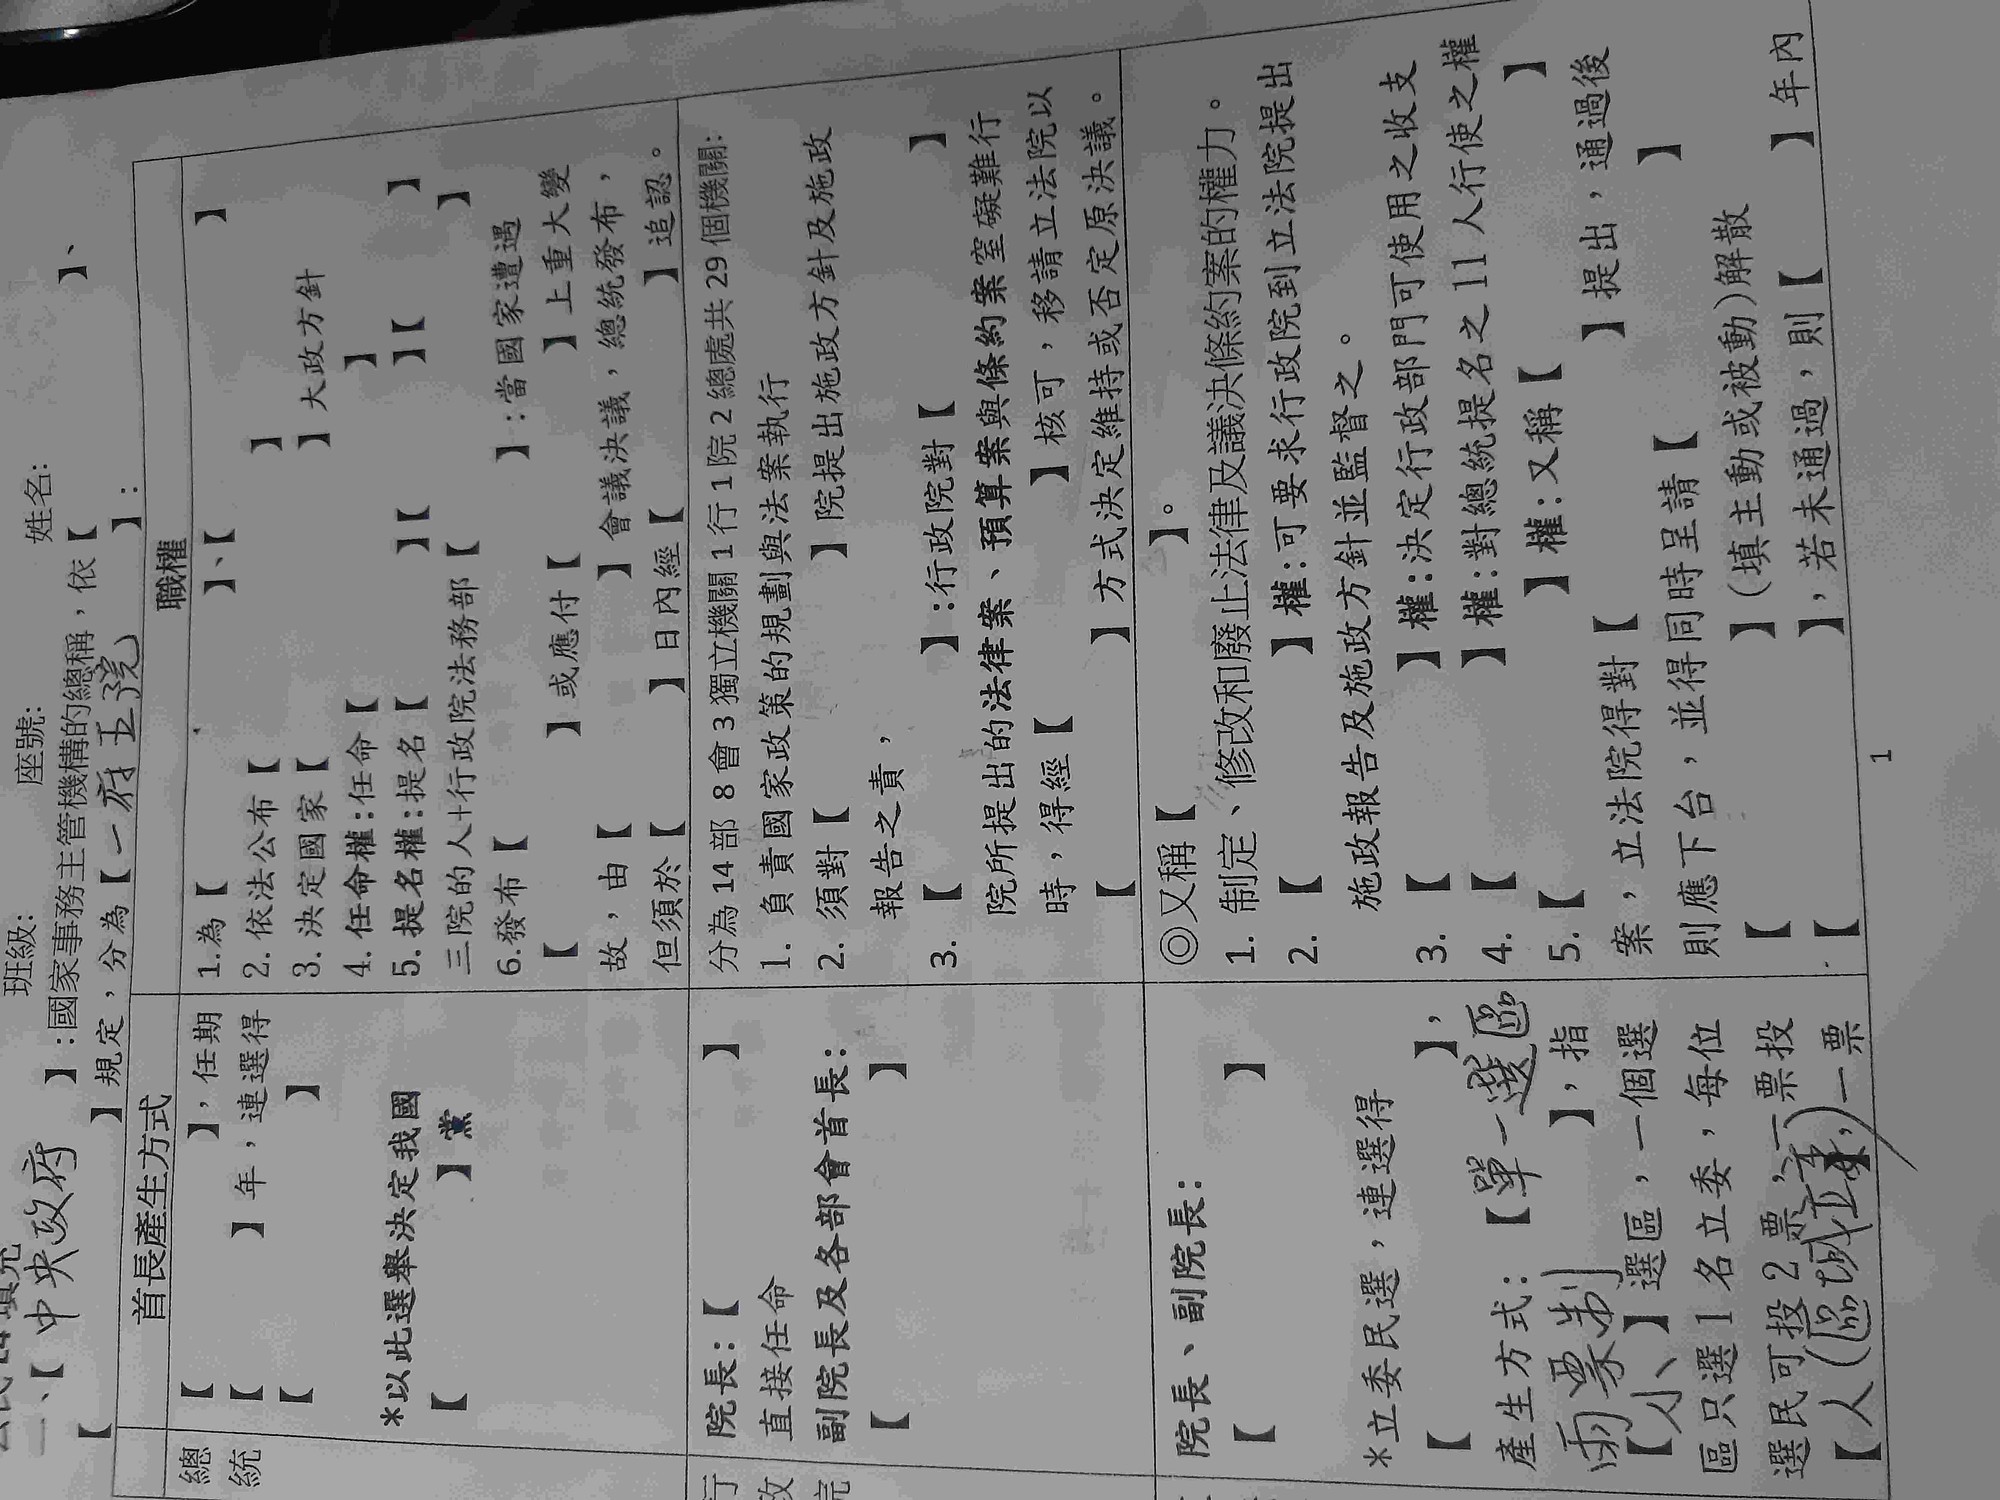 班級: 座號: 姓名:
一、【中央政府】:國家事務主管機構的總稱,依【 】、
【 】規定,分為【一府五院】:
首長產生方式 職權
總統
【 】,任期
【 】年,連選得
【 】
*以此選舉決定我國
【 】黨
1.為【 】、【 】
2.依法公布【 】
3.決定國家【 】大政方針
4.任命權:任命【 】
5.提名權:提名【 】【 】【 】
三院的人+行政院法務部【 】
6.發布【 】:當國家遭遇
【 】或應付【 】上重大變
故,由【 】會議決議,總統發布,
但須於【 】日內經【 】追認。
行政院
院長:【 】
直接任命
副院長及各部會首長:
【 】
分為14部 8會3獨立機關1行1院2總處共29個機關:
1. 負責國家政策的規劃與法案執行
2. 須對【 】院提出施政方針及施政
報告之責,
3.
【 】:行政院對【 】
院所提出的法律案、預算案與條約案窒礙難行
時,得經【 】核可,移請立法院以
【 】方式決定維持或否定原決議。
院長、副院長:
【 】
*立委民選,連選得
【 】,
產生方式:【單一選區
兩票制】,指
【小】選區,一個選
區只選1名立委,每位
選民可投2票,一票投
【人(區域立委)】,一票
◎又稱【 】。
1. 制定、修改和廢止法律及議決條約案的權力。
2.【 】權:可要求行政院到立法院提出
施政報告及施政方針並監督之。
3.【 】權:決定行政部門可使用之收支
4.【 】權:對總統提名之11人行使之權
5.【 】權:又稱【 】
案,立法院得對【 】提出,通過後
則應下台,並得同時呈請【 】
【 】(填主動或被動)解散
【 】,若未通過,則【 】年內
1